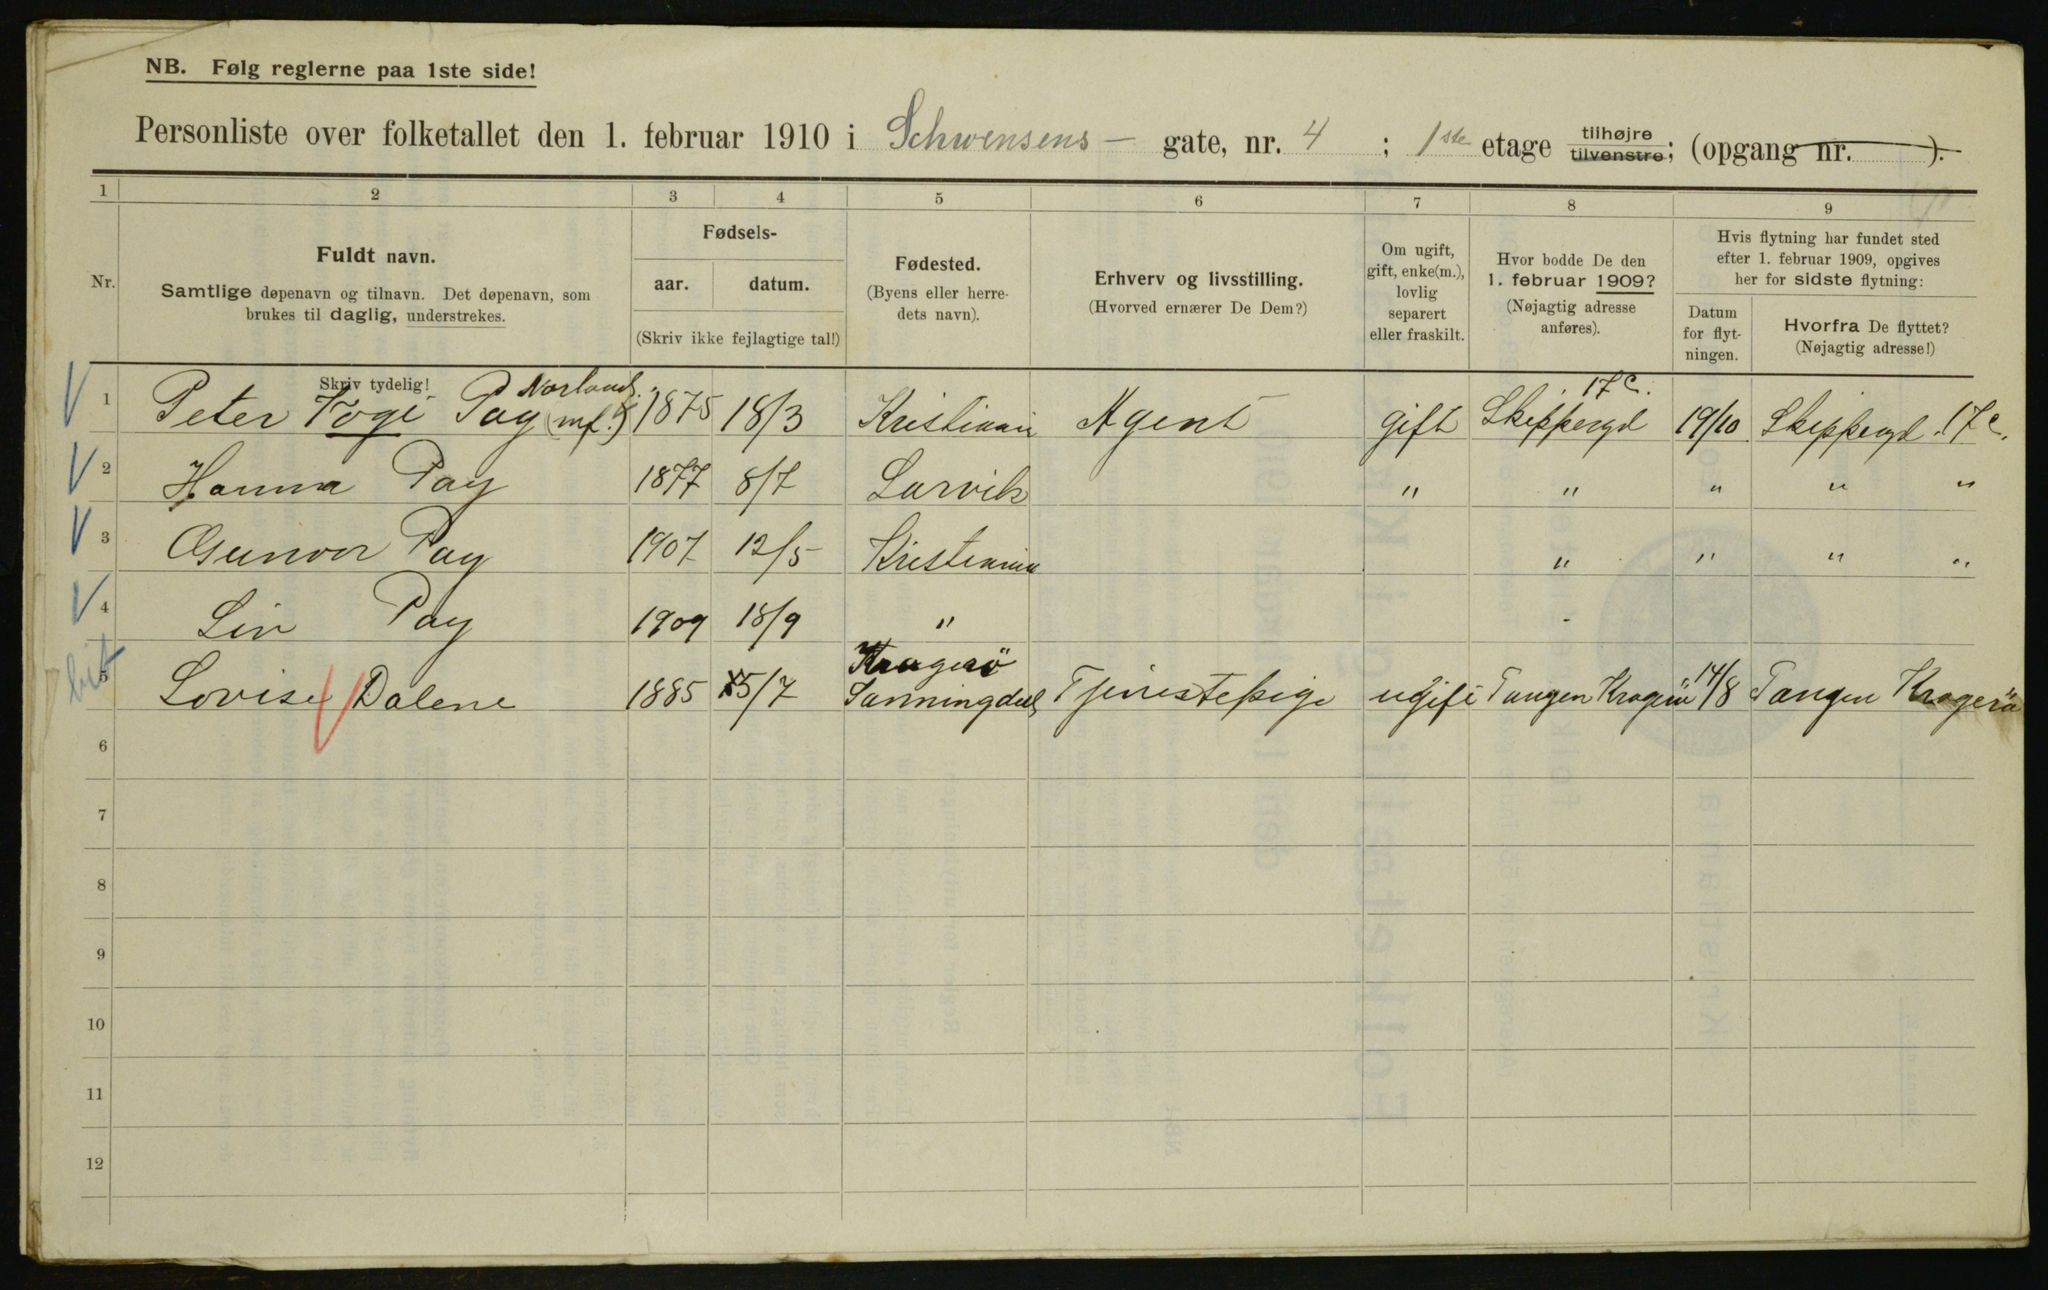 NB. Følg reglerne paa 1ste side!
Personliste over folketallet den 1. februar 1910 i Schwensens - gate, nr. 4 ; 1ste etage tilhøjre tilvenstre; (opgang nr. ).
1 2 3 4 5 6 7 8 9
Nr.
Fuldt navn.
Samtlige døpenavn og tilnavn. Det døpenavn, som
brukes til daglig, understrekes.
Skriv tydelig!
Fødsels-
aar. datum.
(Skriv ikke fejlagtige tal!)
Fødested.
(Byens eller herre-
dets navn).
Erhverv og livsstilling.
(Hvorved ernærer De Dem?)
Om ugift,
gift, enke(m.),
lovlig
separert
eller fraskilt.
Hvor bodde De den
1. februar 1909?
(Nøjagtig adresse
anføres).
Hvis flytning har fundet sted
efter 1. februar 1909, opgives
her for sidste flytning:
Datum
for flyt-
ningen.
Hvorfra De flyttet?
(Nøjagtig adresse!)
1 Peter Pay 1875 18/3 Kristiania Agent gift Skippergd 17c. 19/10 Skippergd. 17c.
2 Hanna Pay 1877 8/7 Larvik " " " " "
3 Gunvor Pay 1907 12/5 Kristiania " " " "
4 Liv Pay 1909 18/9 "
5 Lovise Dalene 1885 5/7 Kragerö Sanningdal Tjenestepige ugift Tangen Kragerö 14/8 Tangen Kragerö
6
7
8
9
10
11
12